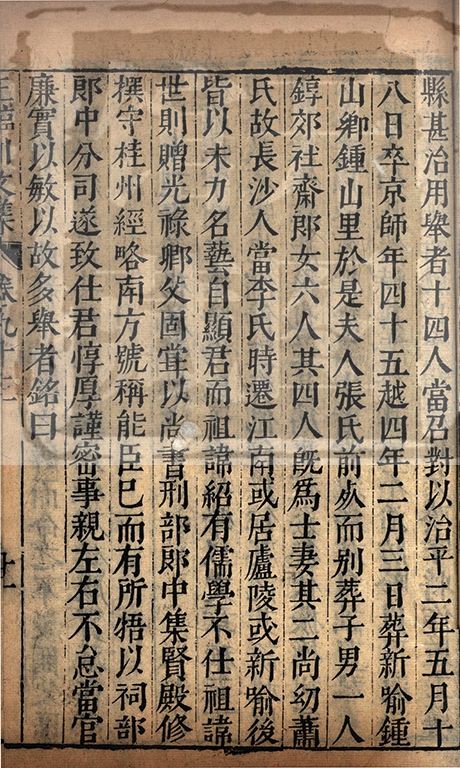 縣甚治用舉者十四人當召對以治平二年五月十
八日卒京師年四十五越四年二月三日葬新喻鍾
山鄉鍾山里於是夫人張氏前𣦸而别葬子男一人
錞郊社齋郎女六人其四人旣爲士妻其二尚幼蕭
氏故長沙人當李氏時遷江南或居廬陵或新喻後
皆以未力名藝自顯君而祖諱紹有儒學不仕祖諱
世則贈光祿卿父固嘗以尚書刑部郎中集賢殿修
撰守桂州經略南方號稱能臣巳而有所牾以祠部
郎中分司遂致仕君惇厚謹密事親左右不怠當官
廉實以敏以故多舉者銘曰
王臨川文集 卷九十三
廿一